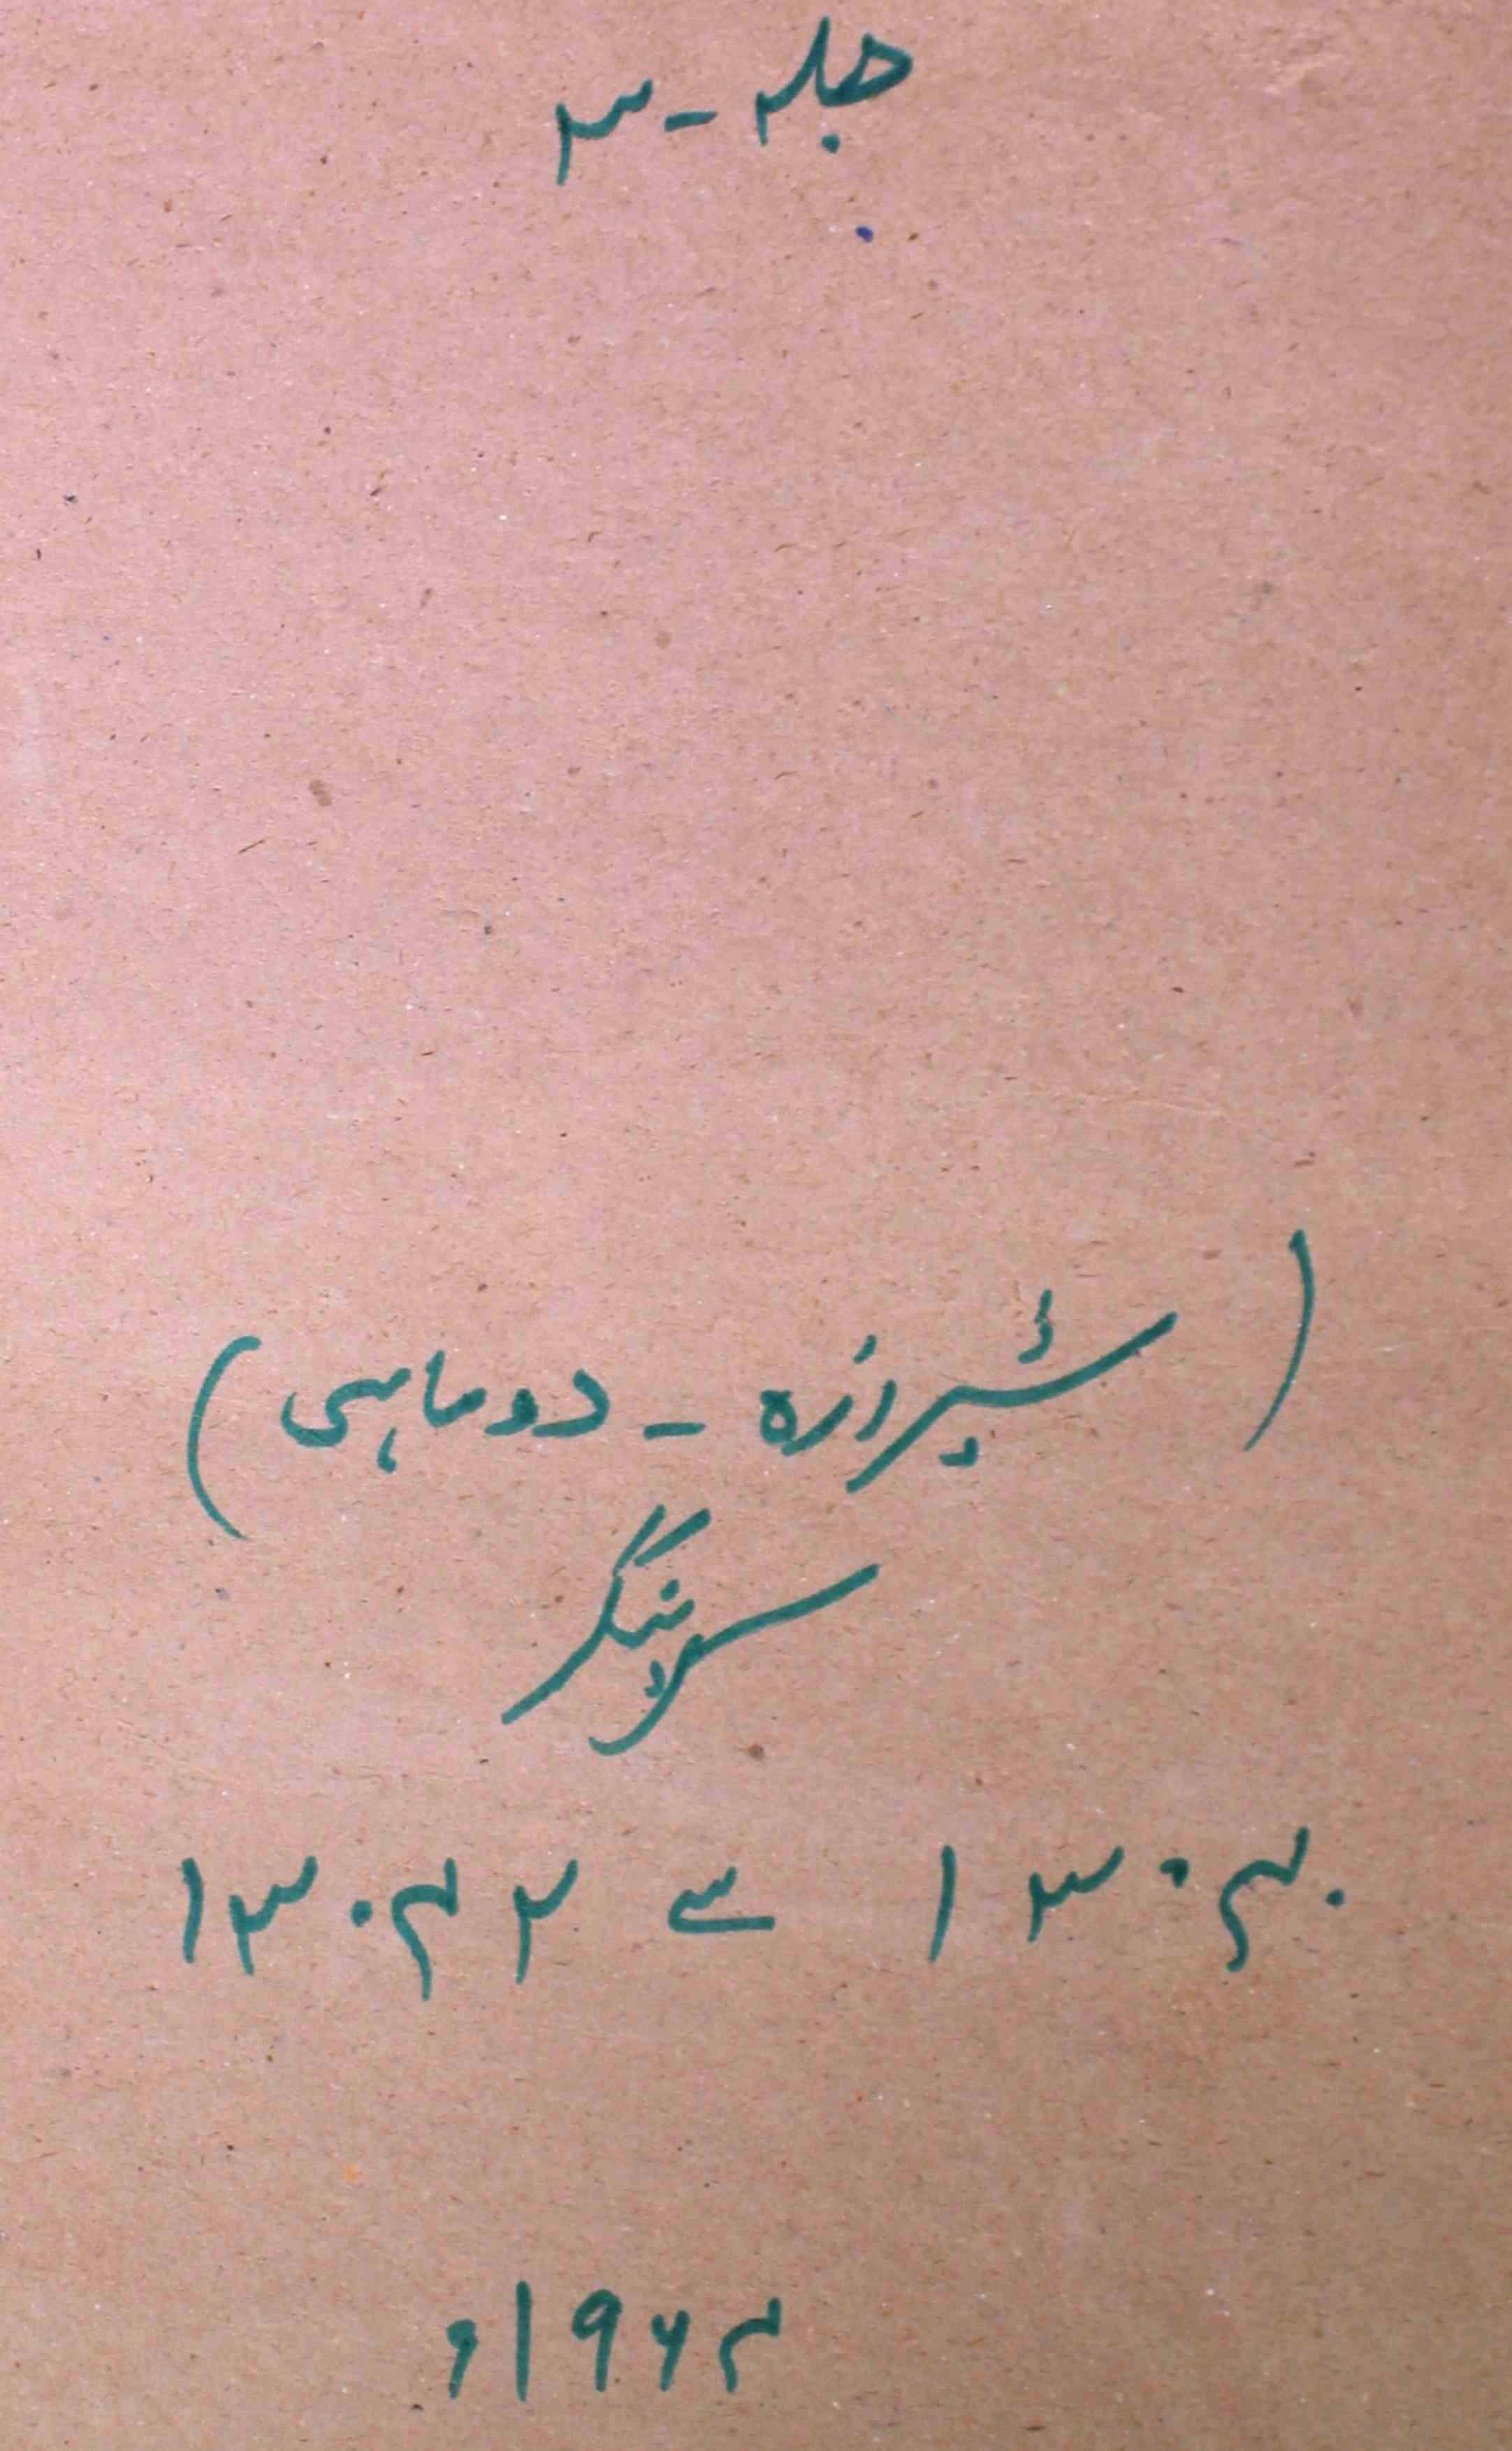 جلد - ۳
(شیرازہ - دوماہی)
سرینگر
۱۳۰۴۰ سے ۱۳۰۴۲
۱۹۶۴ء